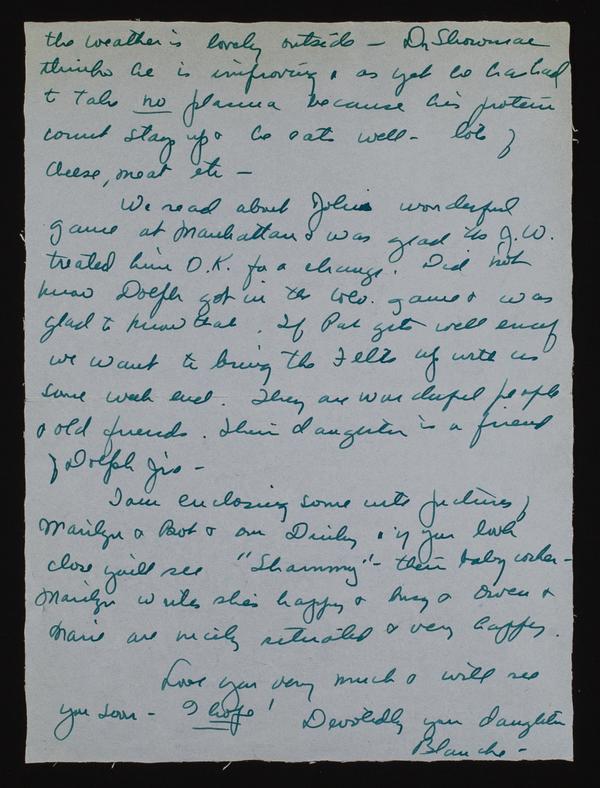 the weather is lovely outside - Dr Showman
thinks he is improving & as yet he has had
to take no plasma because his protein
count stays up & he eats well - lots of
cheese, meat etc -
We read about John's wonderful
game at Manhattan & was glad J.W.
treated him O.K. for a change. Did not
know Dolph got in the Colo. game & was
glad to know that. If Pat gets well enuf
we want to bring the Felts up with us
some week end. They are wonderful people
& old friends. Their daughter is a friend
of Dolph Jrs -
I am enclosing some cute pictures of
Marilyn & Bob & our Dinky & if you look
close you'll see "Shammy" - their baby cocker -
Marilyn writes she's happy & busy & Owen &
Marie are nicely situated & very happy.
Love you very much & will see
you soon - I hope! Devotedly your daughter
Blanche -